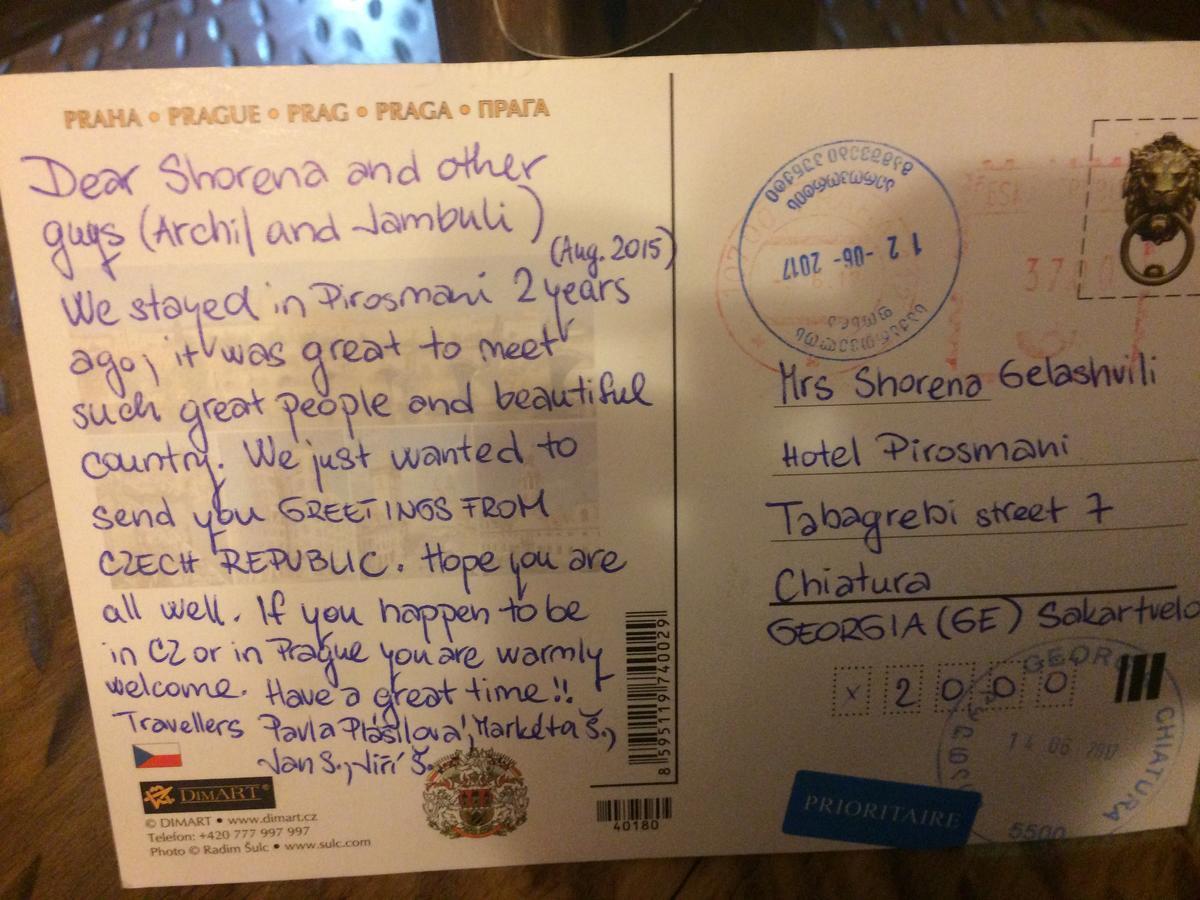 PRAHA • PRAGUE • PRAG • PRAGA • ПРАГА
Dear Shorena and other
guys (Archil and Jambuli)
(Aug. 2015)
We stayed in Pirosmani 2 years
ago, it was great to meet
such great people and beautiful
country. We just wanted to
send you GREETINGS FROM
CZECH REPUBLIC. Hope you are
all well. If you happen to be
in CZ or in Prague you are warmly
welcome. Have a great time!!
Travellers Pavla Plášilová, Markéta Š.,
Jan S., Jiří Š.
DIMART
© DIMART • www.dimart.cz
Telefon: +420 777 997 997
Photo © Radim Šulc • www.sulc.com
8 595119 740029
40180
12 -06- 2017
Mrs Shorena Gelashvili
Hotel Pirosmani
Tabagrebi street 7
Chiatura
GEORGIA (GE) Sakartvelo
x 2 0 0 0
GEORG
14 06 2017
CHIATURA
5500
PRIORITAIRE